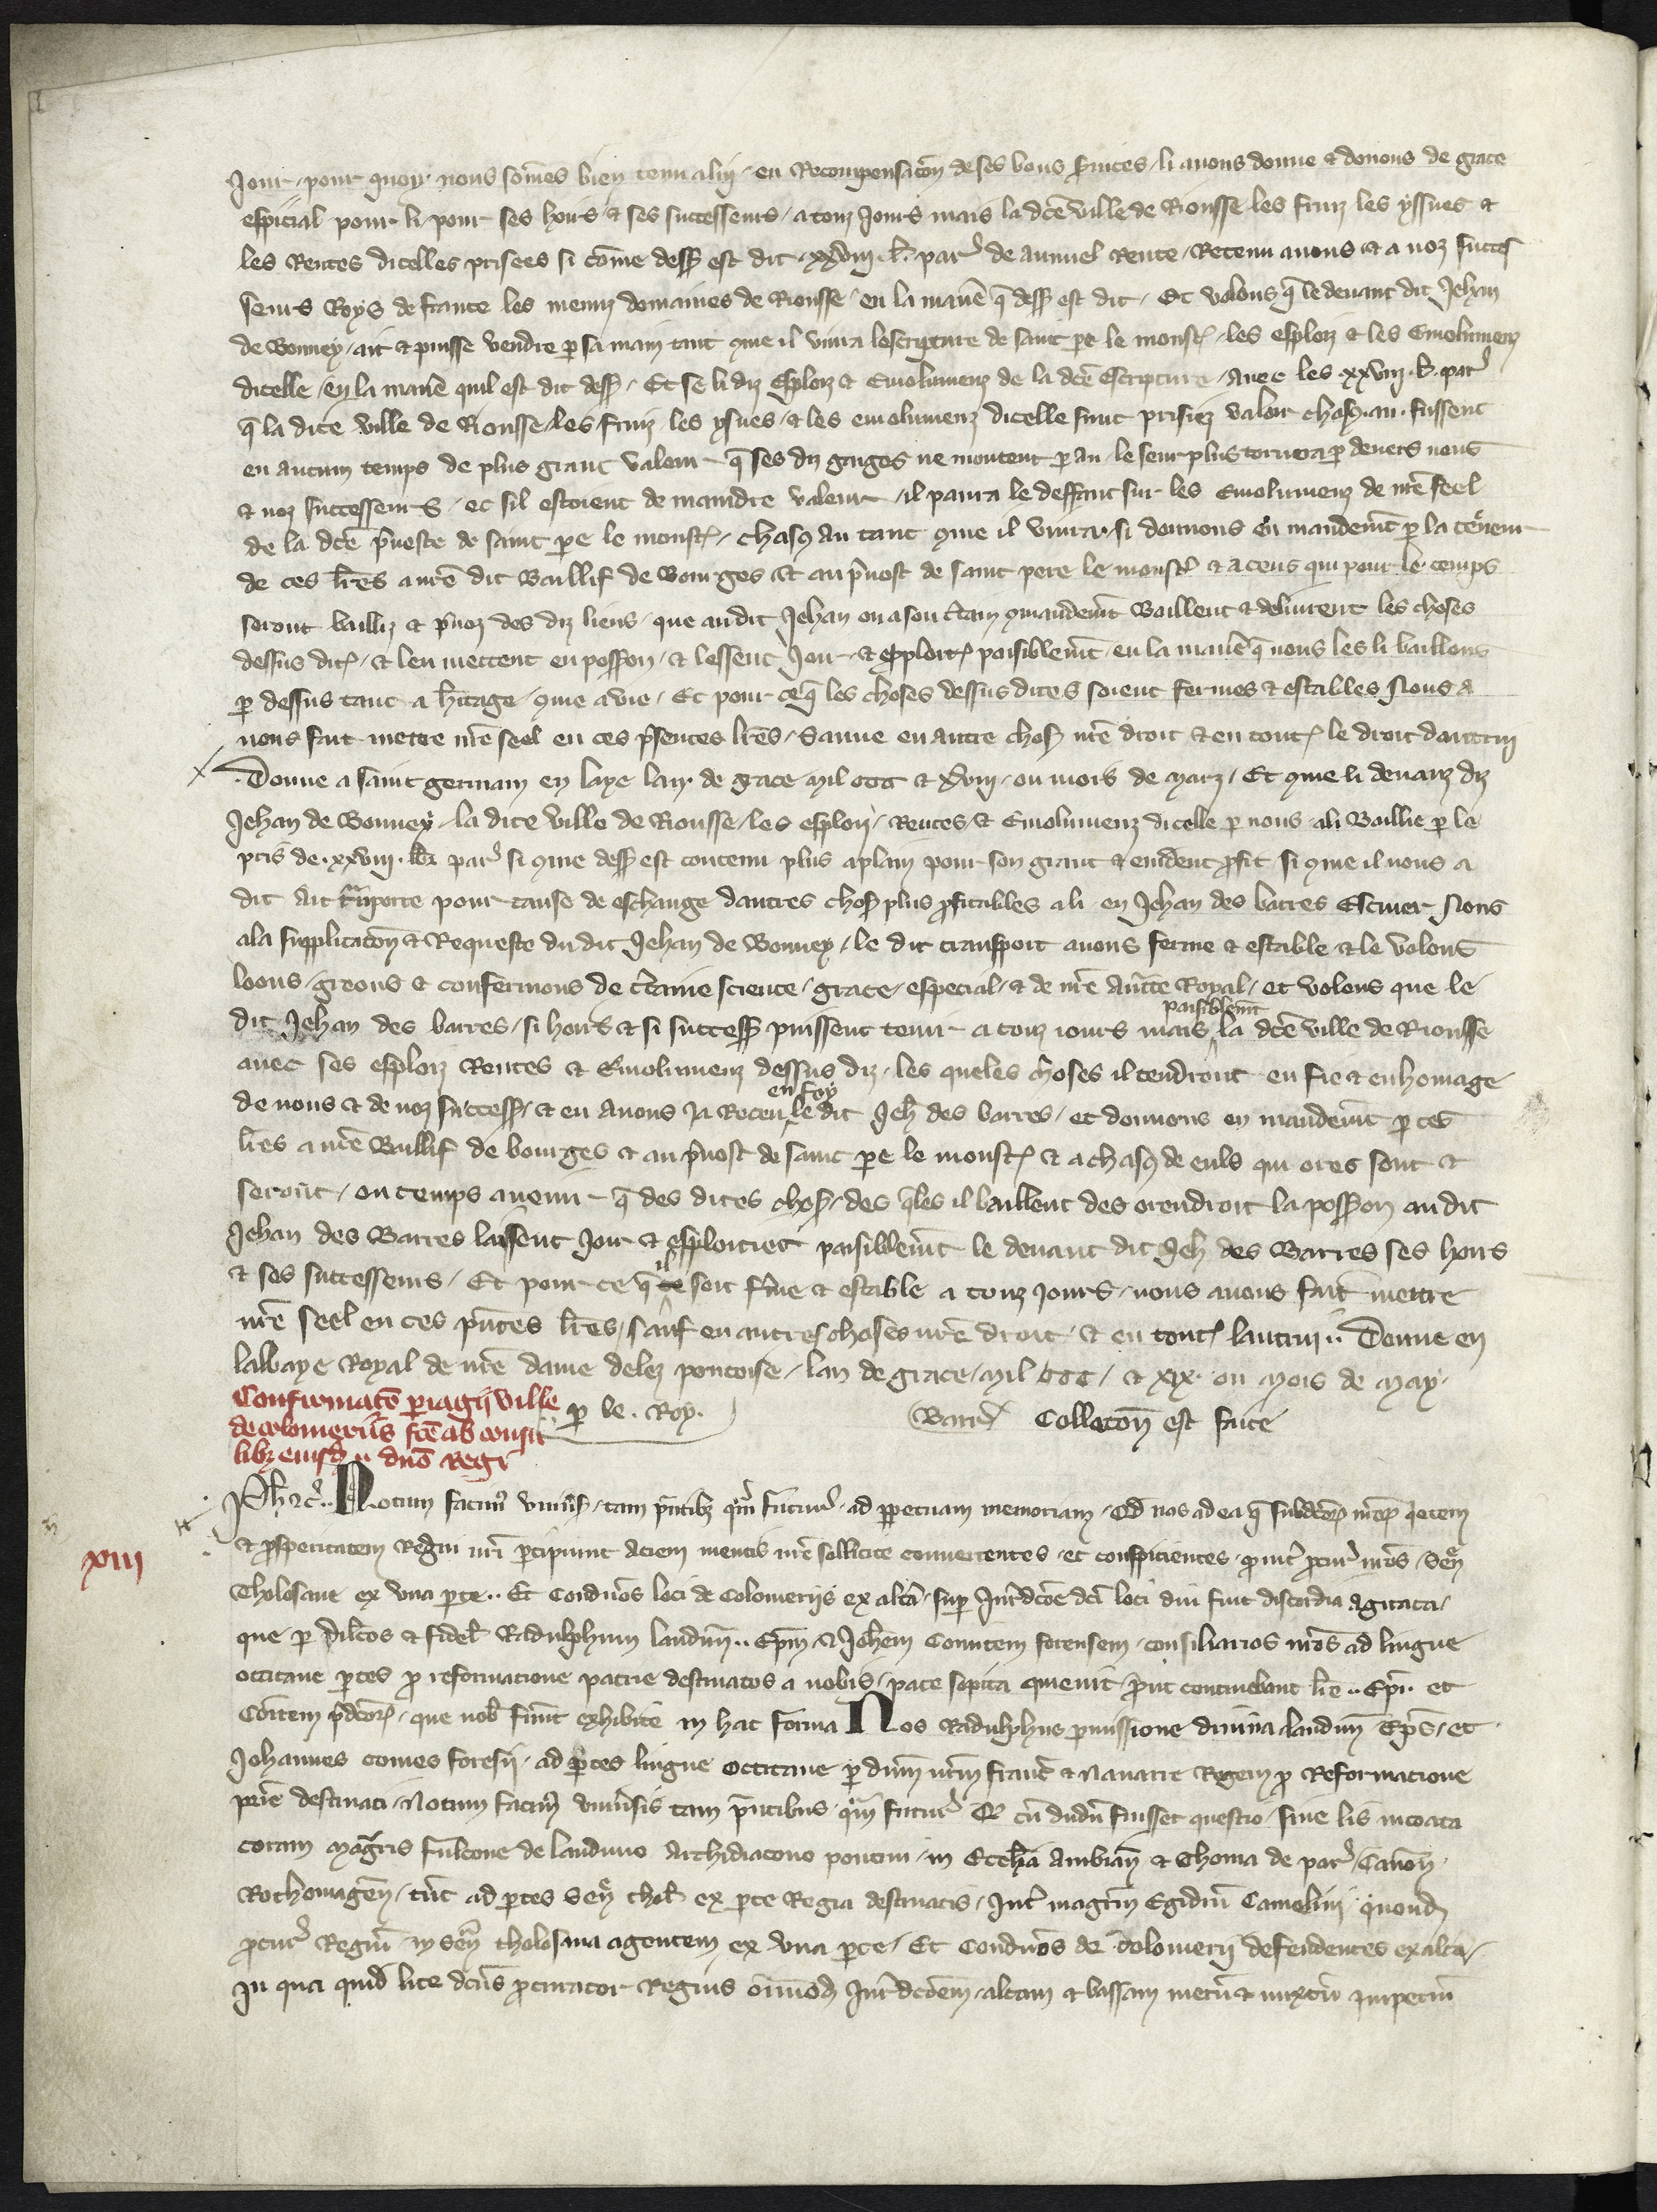 Jour, pour quoy nous somes bien tenu a luy, en Recompensacon de ses bons seruices, li auons donne & donons de grace
espicial pour li, pour ses hoirs & ses successeurs, a touz Jours mais la dce ville de Riousse les fruiz les yssues &
les Rentes dicelles prisees si come dess est dit .xxviij. l. par de annuel Rente, Retenu auons & a noz succes
seurs Roys de france les menuz domaines de Riousse en la maniere q dess est dit, Et volons q le deuant dit Jehan
de Bonney, ait & puisse vendre p sa main tant que il viura lescripture de saint pe le monst, les esploiz & les Emolumenz
dicelle, en la maniere quil est dit dess, Et se li diz Esploiz & Emolumenz de la dce Escripture, auec les xxviij. l. par
q la dite ville de Riousse, les fruiz les yssues, & les emolumenz dicelle sunt prisiez valoir chasq. an. fussent
en aucun temps de plus grant valour q ses diz gaiges ne montent p an, le seurplus tornera p deuers nous
& noz successeurs, et sil estoient de maindre valeur, il panra le deffaut sur les Emolumenz de nre seel
de la dce preuoste de saint pe le monst, chasq an tant que il viura, si donnons en mandemt p la teneur
de ces lres a nre dit Baillif de Bourges & au preuost de saint pere le monst & a ceus qui pour le temps
seront bailliz & preuoz des diz lieus, que au dit Jehan ou a son certain commandemt Baillent & deliurent les choses
dessus dit, & len mettent en possession, & lessent Joir & esploit paisiblemt, en la maniere q nous les li baillons
p dessus tant a heritage, que a vie, Et pour ce q les choses dessus dites soient fermes & estables Nous a
uons fait mettre nre seel en ces presentes lres, Sauue en autre chos nre droit & en tout le droit dautrui
Donne a saint germain en laye lan de grace mil ccc & xviij, ou mois de marz, Et que li deuanz diz
Jehan de Bonney, la dite ville de Riousse, les esploiz, Rentes, & Emolumenz dicelle p nous a li Baillie p le
pris de .xxviij. lb par si que dess est contenu plus a plain pour son grant & euident profit si que il nous a
dit Ait transporte pour cause de eschange dautres chos plus profitables a li en Jehan des barres Escuier Nous
a la supplicacon & Requeste du dit Jehan de Bonney, le dit transport auons ferme & estable, & le volons
loons, greons & confermons de certaine science, grace, especial, & de nre Aucte Royal, et volons que le
dit Jehan des barres, si hoirs & si success puissent tenir a touz iours mais paisiblemt la dce ville de Riousse
auec ses esploiz Rentes & Emolumenz dessus diz, les queles choses il tendront en fie & en homage
de nous & de noz success, & en Auons Ja Receu en foy le dit Jeh des barres, et donnons en mandemt p ces
lres a nre Baillif de bourges & au preuost de saint pe le monst & a chasq de euls qui ores sont &
seront, ou temps auenir q des dites chos, des qles il baillent des orendroit la possession au dit
Jehan des Barres laissent Joir & esploitier paisiblemt le deuant dit Jeh des Barres ses hoirs
& ses successeurs, Et pour ce q il soit ferme & estable a touz Jours, nous auons fait mettre
nre seel en ces pntes lres, sauf en autres choses nre droit, & en tout lautrui.. Donne en
labbaye Royal de nre dame delez pontoise, lan de grace, mil ccc, & xix. ou mois de may.
p le. Roy. Bard Collacon est faite
Confirmato pariagij ville
de colomeriis fce ab consu
lib eiusd dno Regi
xiii
Ph &c.. Notum facim vniuis, tam pntib qm futur, ad ppetuam memoriam, Qd nos ad ea q subdcor nror quietem
& prosperitatem Regni nri percipiunt Aciem mentis nre sollicite conuertentes, et conspicientes, pmit pcur nros, Sen
Tholosane ex vna pte.. Et Condnos loci de Colomerijs ex altera, sup Jurdcoe dci loci diu fuit discordia agitata,
que p dilectos & fidel Radulphum laudun.. Epm, & Johem Comitem forensem, consiliarios nros ad lingue
occitane ptes p reformacione patrie destinatos a nobis, pace sopita quieuit, prout continebant lre.. Epi. et
Comitem pdcor, que nob funt exhibite in hac forma Nos Radulphus pmissione diuina laudun Eps, et
Johannes comes foresij, ad ptes lingue occitane p dnm nrm franc & Nauarre Regem p Reformacione
prie destinati, Notum facim vniuersis tam pntibus qm futur Q cu dudu fuisset questio, siue lis incoata
coram Magris fulcone de lauduno Archidiacono pontiui, in Ecclia Ambian & Thoma de par, Canon
Rothomagen, tunc ad ptes Sen thol ex pte Regia destinatis, Int magrm Egidiu Camelini quond
pcur Regiu, in Sen tholosana agentem ex vna pte, Et Condnos de Colomerij defendentes ex alta,
In qua quid lite dcus pcurator Regius oimod Jurdcoem, altam & bassam meru & mixtu imperiu